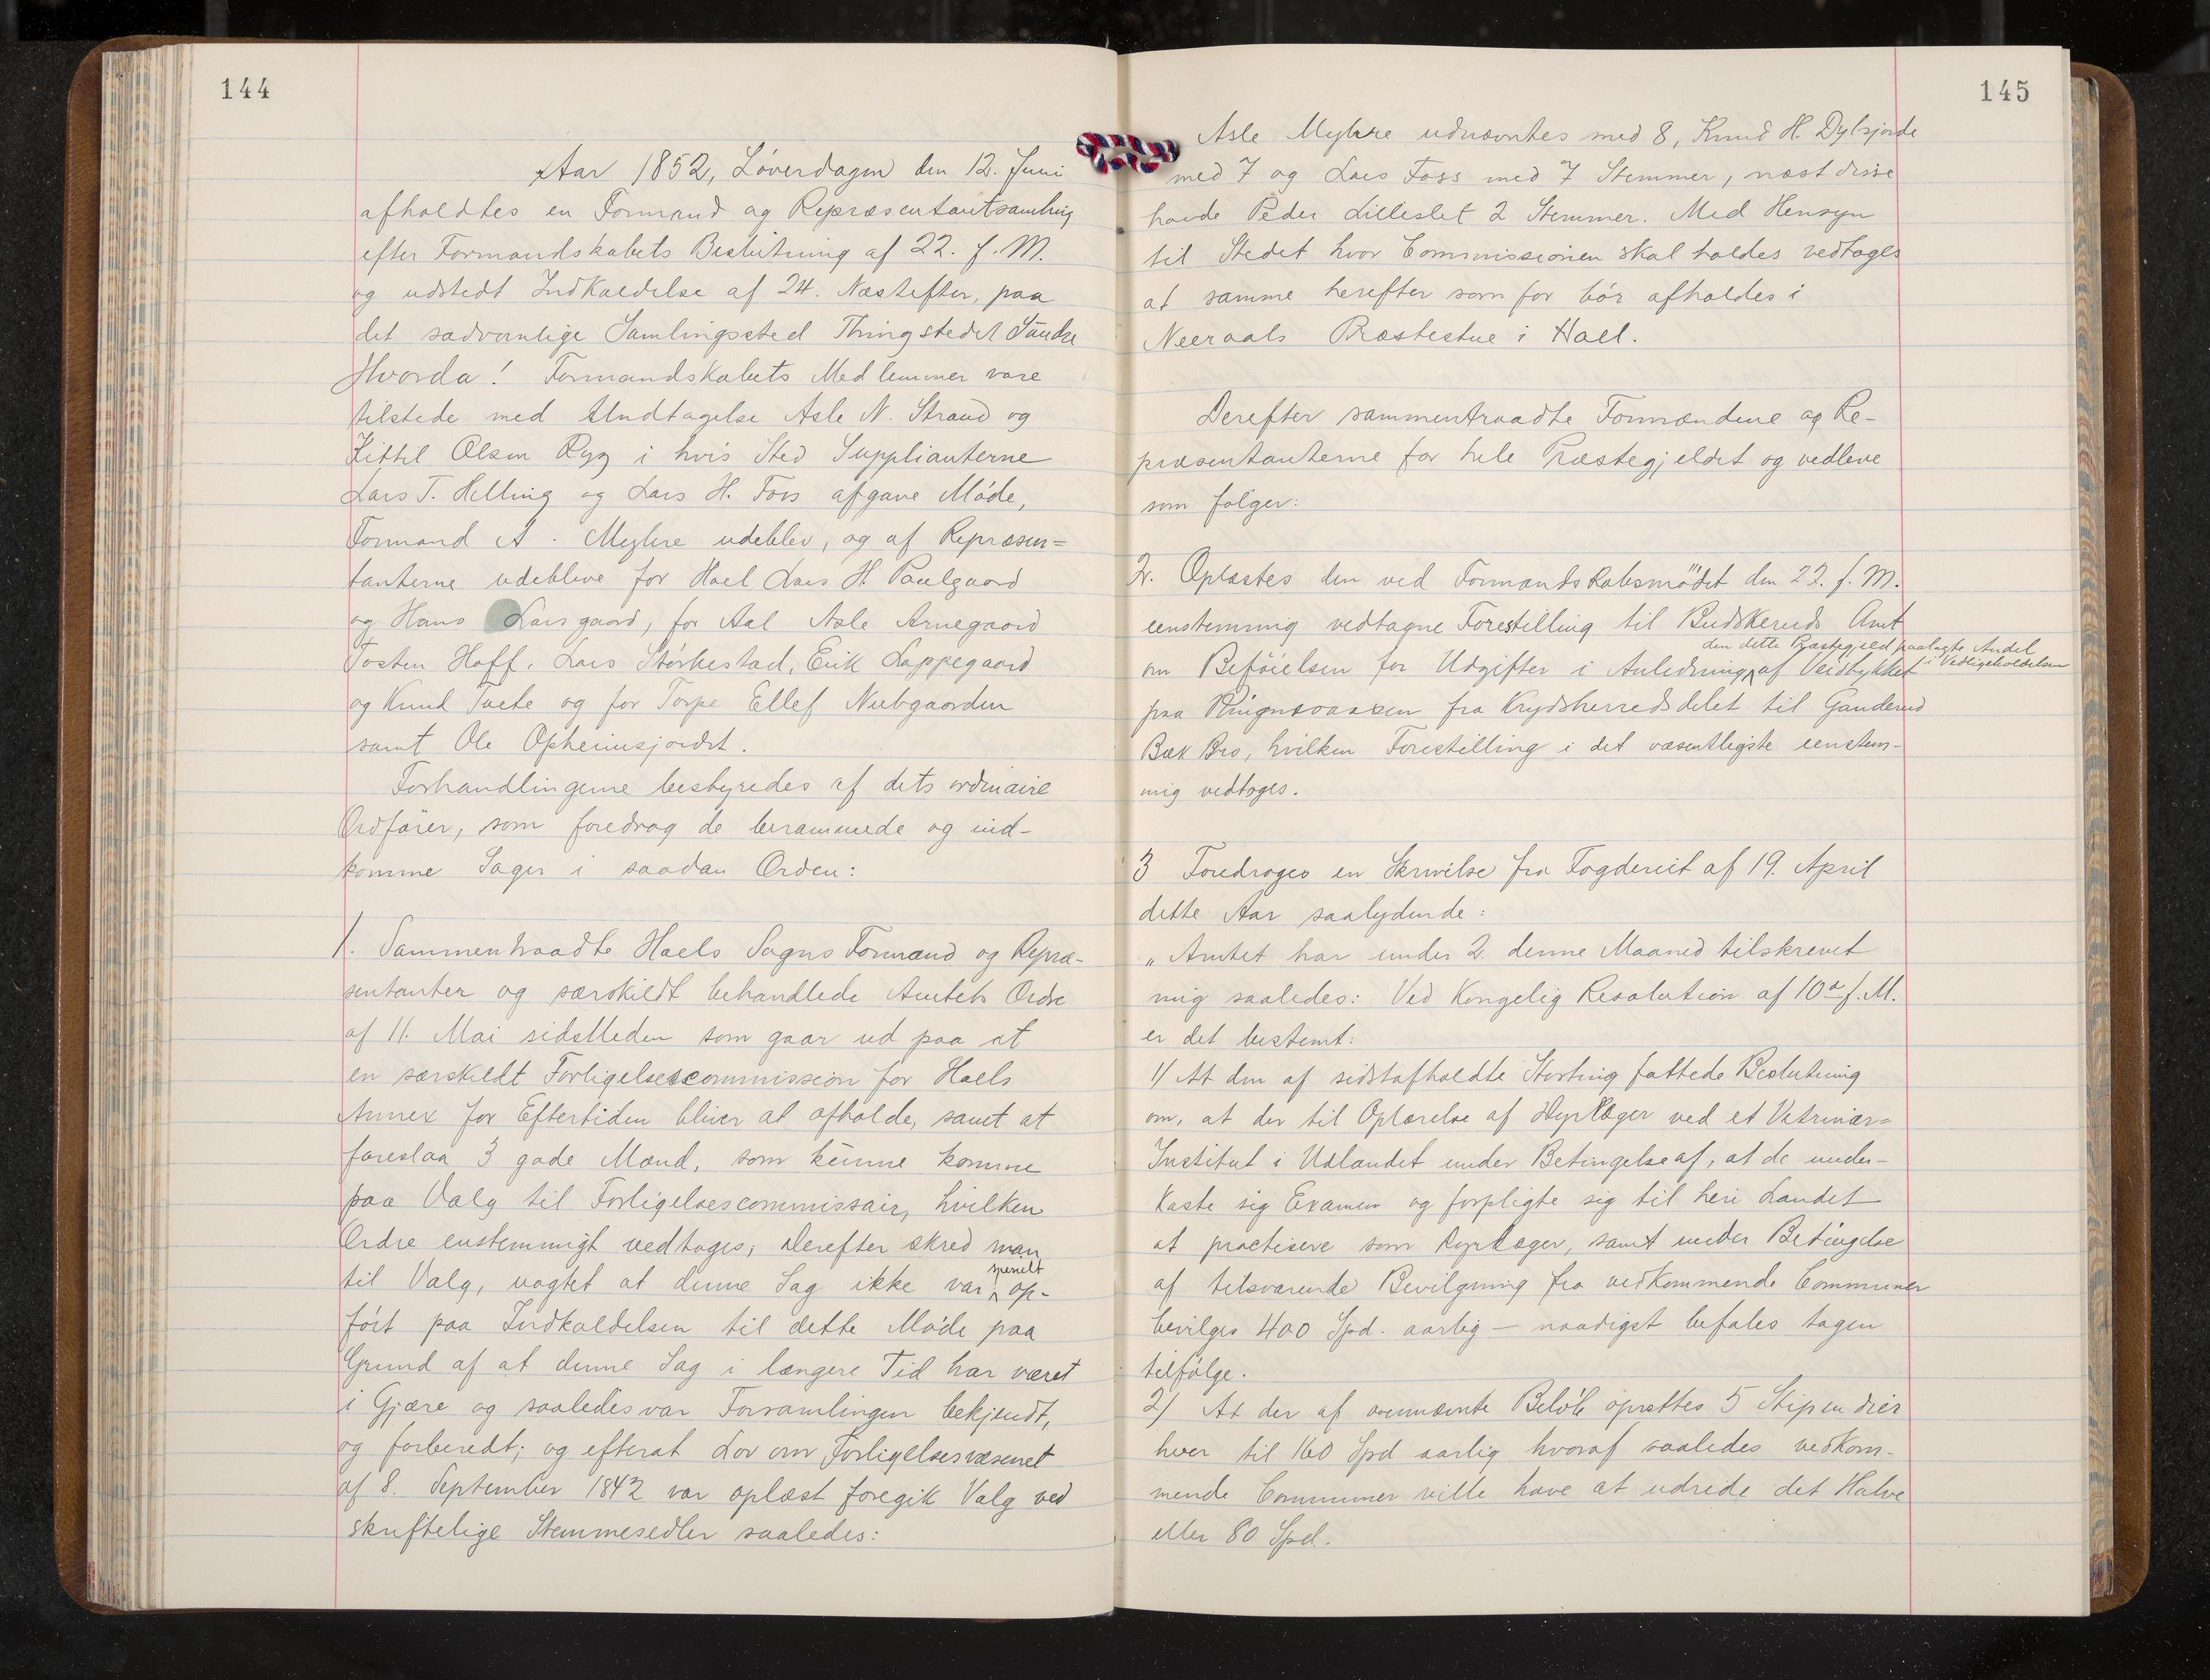 144
Aar 1852, Løverdagen den 12. Juni
afholdtes en Formand og Repræsentantsamling
efter Formandskabets Beslutning af 22. f. M.
og udstedt Indkaldelse af 24. Næstefter, paa
det sædvanlige Samlingssted Thingstedet Søndre
Hvorda! Formandskabets Medlemmer vare
tilstede med Undtagelse Asle N. Strand og
Kittil Olsen Ryg i hvis Sted Supplianterne
Lars T. Helling og Lars H. Foss afgave Møde,
Formand A. Myhre udeblev, og af Repræsen=
tanterne udebleve for Hael Lars H. Paulgaard
og Hans Larsgaard, for Aal Asle Arnegaard
Tosten Hoff, Lars Størkestad, Erik Lappegaard
og Knud Tvete og for Torpe Ellef Nubgaarden
samt Ole Opheimsjordet.
Forhandlingerne bestyredes af dets ordinaire
Ordfører, som foredrog de berammede og ind-
komme Sager i saadan Orden:
1. Sammentraadte Haels Sogns Formænd og Repræ-
sentanter og særskildt behandlede Amtets Ordre
af 11. Mai sidstleden som gaar ud paa at
en særskildt Forligelsescommission for Haels
Annex for Eftertiden bliver at afholde, samt at
foreslaa 3 gode Mænd, som kunne komme
paa Valg til Forligelsescommissair, hvilken
Ordre enstemmigt vedtoges; derefter skred man
til Valg, uagtet at denne Sag ikke var specielt op-
ført paa Indkaldelsen til dette Møde paa
Grund af at denne Sag i længere Tid har været
i Gjære og saaledes var Forsamlingen bekjendt,
og forberedt; og efterat Lov om Forligelsesvæsenet
af 8. September 1842 var oplæst foregik Valg ved
skriftelige Stemmesedler saaledes:
145
Asle Myhre udnævntes med 8, Knud H. Dylsjorde
med 7 og Lars Foss med 7 Stemmer, næst disse
havde Peder Lilleslet 2 Stemmer. Med Hensyn
til Stedet hvor Commissionen skal holdes vedtoges
at samme herefter som før bør afholdes i
Neeraals Præstestue i Hael.
Derefter sammentraadte Formændene og Re-
præsentanterne for hele Præstegjeldet og vedleve
som følger:
2. Oplæstes den ved Formandskabsmødet den 22. f. M.
eenstemmig vedtagne Forestilling til Budskeruds Amt
den dette Præstegjeld paalagte Andel
om Beføielsen for Udgifter i Anledning af Veistykket i Vedligeholdelsen
paa Ringnesaasen fra Krydsherredsdelet til Ganderud
Bæk Bro, hvilken Forestilling i det væsentligste eenstem-
mig vedtoges.
3 Foredroges en Skrivelse fra Fogderiet af 19. April
dette Aar saalydende:
„ Amtet har under 2. denne Maaned tilskrevet
mig saaledes: Ved Kongelig Resolution af 10de f. M.
er det bestemt:
1) At den af sidstafholdte Storting fattede Beslutning
om, at der til Oplærelse af Dyrlæger ved et Vetrinær=
Institut i Udlandet under Betingelse af, at de under-
kaste sig Examen og forpligte sig til heri Landet
at practisere som Dyrlæger, samt under Betingelse
af tilsvarende Bevilgning fra vedkommende Communer
bevilges 400 Spd. aarlig — naadigst befales tagen
tilfølge.
2) At der af ovennævnte Beløb oprettes 5 Stipendier
hver til 160 Spd aarlig hvoraf saaledes vedkom-
mende Communer ville have at udrede det Halve
eller 80 Spd.